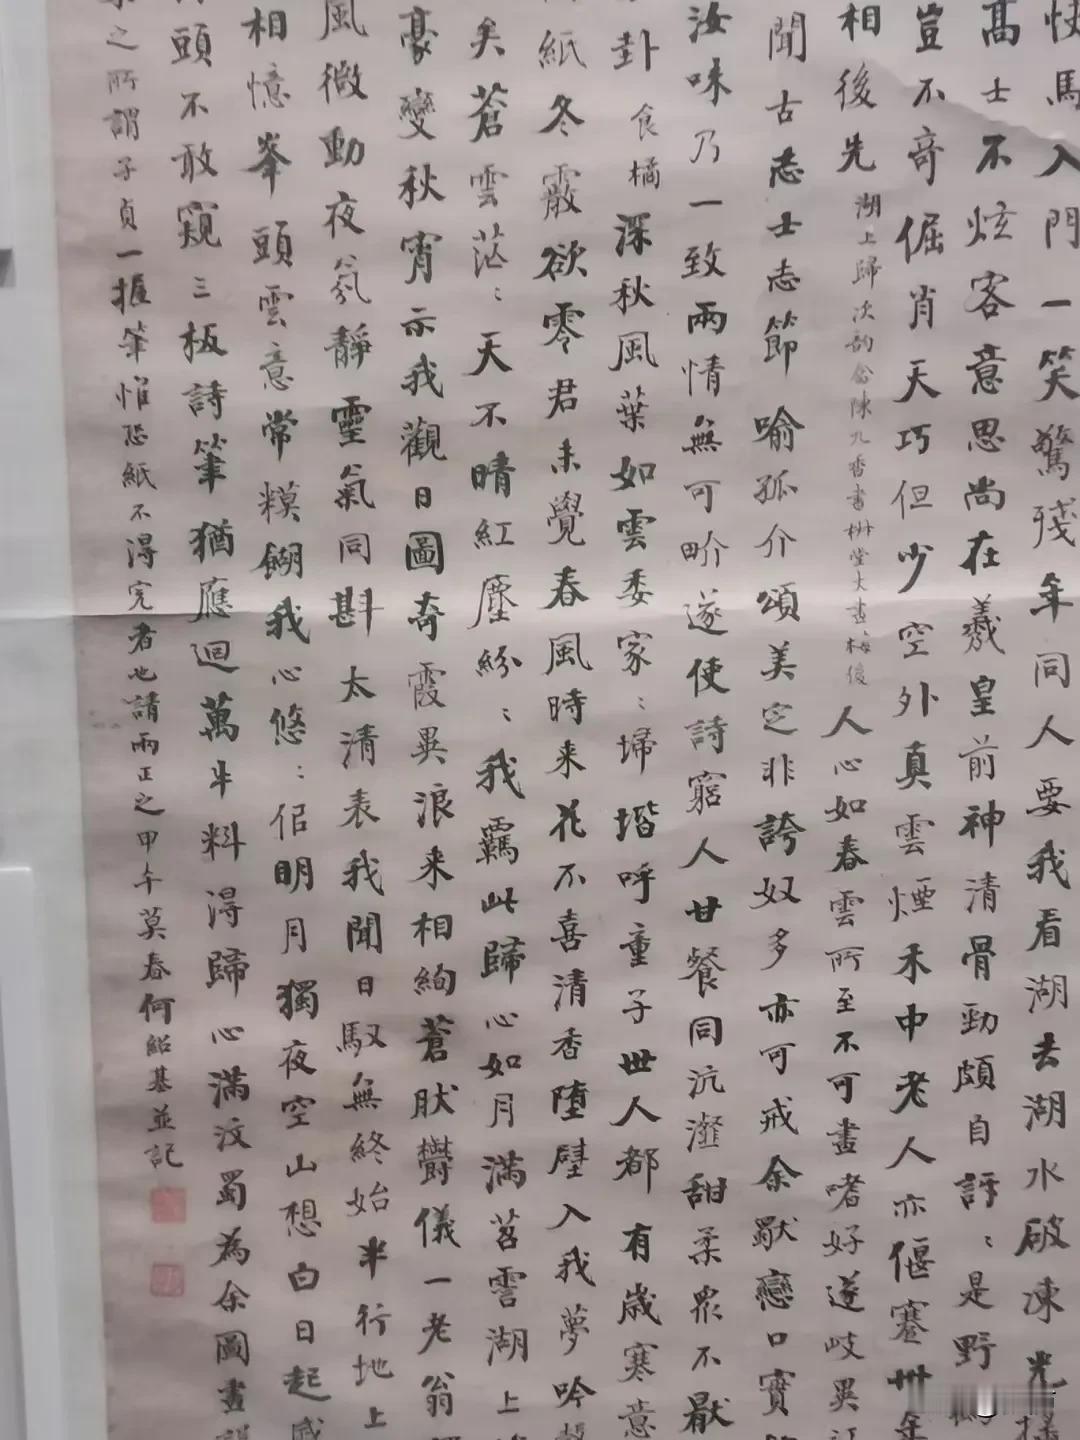 仗馬入門一笑驚殘年同人要我看湖去湖水破凍光搖
高士不炫客意思尚在羲皇前神清骨勁頗自訝:是野
豈不奇倔肖天巧但少空外真雲煙禾中老人亦偃蹇卅年
相後先 湖上歸次韵畣陳九香書樹堂大畫梅後 人心如春雲所至不可畫嗜好遂岐異
聞古志士志節喻孤介頌美定非誇奴多亦可戒余獸戀口實
汝味乃一致兩情無可畍遂使詩窮人甘餐同沆瀣甜柔衆不厭
卦 食橘 深秋風葉如雲委家:埽堦呼童子世人都有歲寒意
紙冬霰欲零君未覺春風時来花不喜清香墮壁入我夢吟
矣蒼雲茫:天不晴紅塵紛:我羈此歸心如月滿苕霅湖上
豪變秋宵示我觀日圖奇霞異浪来相絢蒼肰欝儀一老翁
風微動夜氛靜靈氣同斟太清表我聞日馭無終始半行地上
相憶峯頭雲意常糢餬我心悠:佀明月獨夜空山想白日起
頭不敢窺三板詩筆猶應迴萬牛料得歸心滿汶蜀為余圖畫
之所謂子貞一握筆惟恐紙不得完者也請兩正之甲午莫春何紹基並記